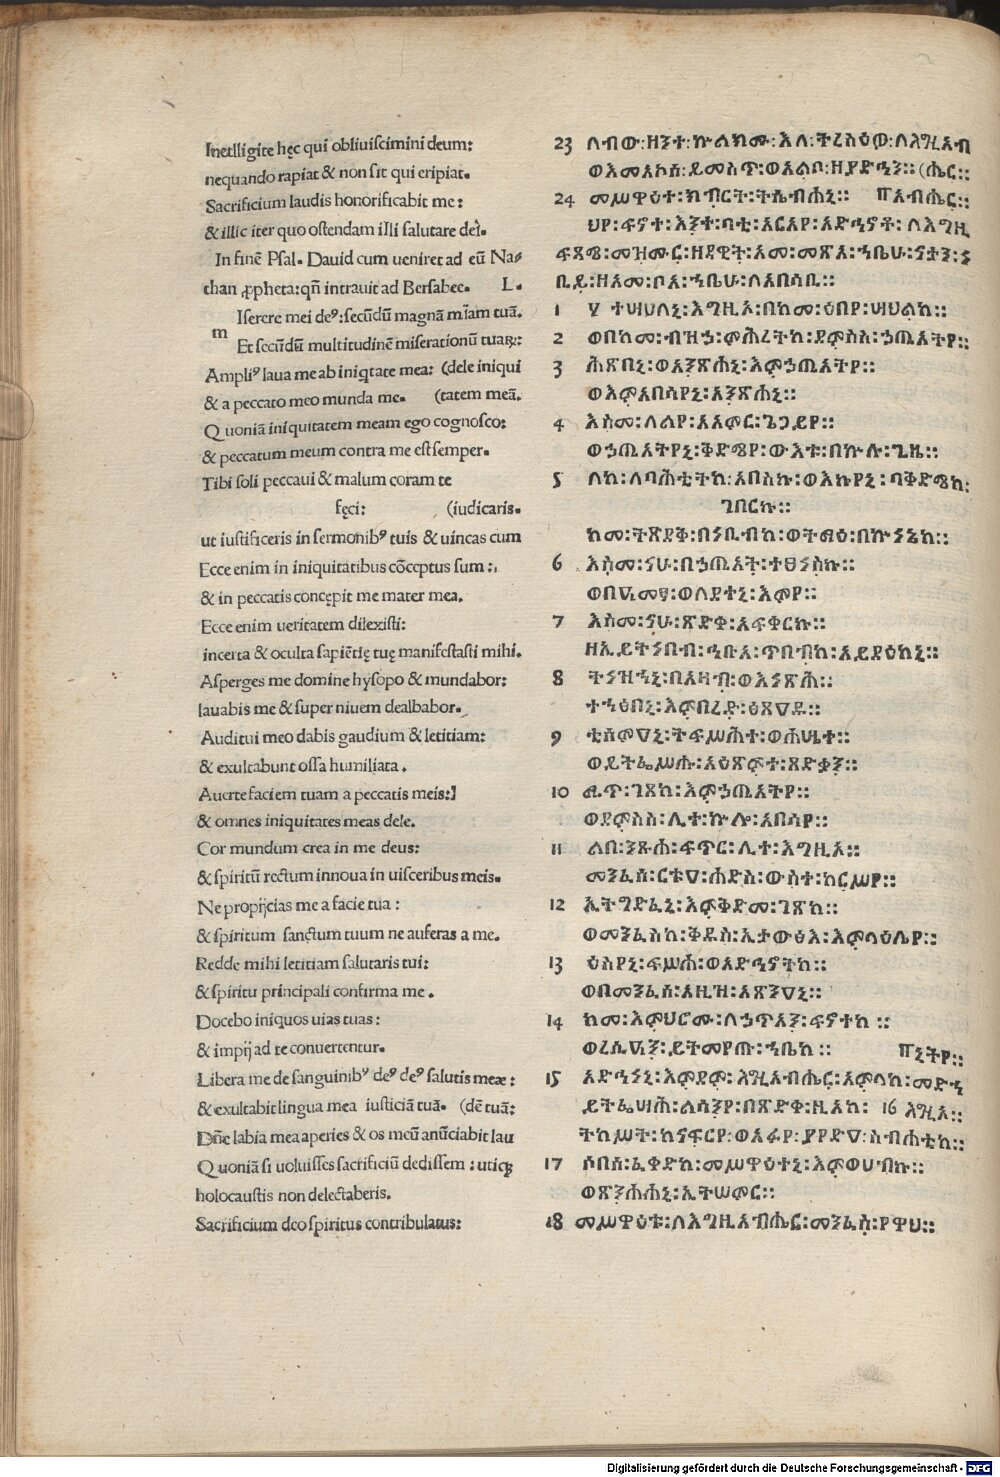 Inetlligite hęc qui obliuiſcimini deum:
nequando rapiat & non ſit qui eripiat.
Sacrificium laudis honorificabit me:
& illic iter quo oſtendam illi ſalutare dei.
In finē Pſal. Dauid cum ueniret ad eū Na⸗
than ꝓpheta: qñ intrauit ad Berſabee. L.
m Iſerere mei de⁹: ſecūdū magnā mīam tuā.
Et ſecūdū multitudinē miſerationū tuaꝝ:
Ampli⁹ laua me ab iniqtate mea: (dele iniqui
& a peccato meo munda me. (tatem meā.
Quoniā iniquitatem meam ego cognoſco:
& peccatum meum contra me eſt ſemper.
Tibi ſoli peccaui & malum coram te
fęci: (iudicaris.
ut iuſtificeris in ſermonib⁹ tuis & uincas cum
Ecce enim in iniquitatibus cōceptus ſum:
& in peccatis concępit me mater mea.
Ecce enim ueritatem dilexiſti:
incerta & oculta ſapiētię tuę manifeſtaſti mihi.
Aſperges me domine hyſopo & mundabor:
lauabis me & ſuper niuem dealbabor.
Auditui meo dabis gaudium & letitiam:
& exultabunt oſſa humiliata.
Auerte faciem tuam a peccatis meis:
& omnes iniquitates meas dele.
Cor mundum crea in me deus:
& ſpiritū rectum innoua in uiſceribus meis.
Ne proijcias me a facie tua:
& ſpiritum ſanctum tuum ne auferas a me.
Redde mihi letitiam ſalutaris tui:
& ſpiritu principali confirma me.
Docebo iniquos uias tuas:
& impij ad te conuertentur.
Libera me de ſanguinib⁹ de⁹ de⁹ ſalutis meæ:
& exultabit lingua mea iuſticiā tuā. (dē tuā:
Dn̄e labia mea aperies & os meū anūciabit lau
Quoniā ſi uoluiſſes ſacrificiū dediſſem: utiqꝫ
holocauſtis non delectaberis.
Sacrificium deo ſpiritus contribulatus:
23 ለብው፡ዘንተ፡ኵልክሙ፡እለ፡ትረስዕዎ፡ለእግዚአብ
ወእመአኮሰ፡ይመስጥ፡ወአልቦ፡ዘያድኅን፡፡(ሔር፡፡
24 መሥዋዕተ፡ክብርት፡ትሴብሐኒ፡፡ ፐአብሔር፡፡
ህየ፡ፍኖተ፡እንተ፡ባቲ፡አርአየ፡አድኅኖቶ፡ለእግዚ
ፍጻሜ፡መዝሙር፡ዘዳዊት፡አመ፡መጽአ፡ኀቤሁ፡ናታን፡ነ
ቢይ፡ዘአመ፡ቦአ፡ኀቤሁ፡ለአበሳቢ፡፡
1 ፶ ተሣሀለኒ፡እግዚኦ፡በከመ፡ዕበየ፡ሣህልከ፡፡
2 ወበከመ፡ብዝኃ፡ምሕረትከ፡ደምስስ፡ኃጢአትየ፡፡
3 ሕጽበኒ፡ወአንጽሐኒ፡እምኃጢአትየ፡፡
ወእምአበሳየኒ፡አንጽሐኒ፡፡
4 እስመ፡ለልየ፡አአምር፡ጌጋይየ፡፡
ወኃጢአትየኒ፡ቅድሜየ፡ውእቱ፡በኵሉ፡ጊዜ፡፡
5 ለከ፡ለባሕቲትከ፡አበስኩ፡ወእኩየኒ፡ባቅድሜከ፡
ገበርኩ፡፡
ከመ፡ትጽደቅ፡በነቢብከ፡ወትማዕ፡በኵነኔከ፡፡
6 እስመ፡ናሁ፡በኃጢአት፡ተፀነስኩ፡፡
ወበዓመፃ፡ወለደተኒ፡እምየ፡፡
7 እስመ፡ናሁ፡ጽድቀ፡አፍቀርኩ፡፡
ዘኢይትነበብ፡ኅቡአ፡ጥበብከ፡አይዳዕከኒ፡፡
8 ትነዝኀኒ፡በአዛብ፡ወእነጽሕ፡፡
ተኀፅበኒ፡እምበረድ፡ፅጸዓዱ፡፡
9 ታሰምዓኒ፡ትፍሥሕተ፡ወሐሤተ፡፡
ወይትፌሥሑ፡አዕጽምተ፡ጻድቃን፡፡
10 ሚጥ፡ገጸከ፡እምኃጢአትየ፡፡
ወደምስስ፡ሊተ፡ኵሎ፡አበሳየ፡፡
11 ልበ፡ንጹሐ፡ፍጥር፡ሊተ፡እግዚአ፡፡
መንፈሰ፡ርቱዓ፡ሐድስ፡ውስተ፡ከርሥየ፡፡
12 ኢትግድፈኒ፡እምቅድመ፡ገጽከ፡፡
ወመንፈስከ፡ቅዱስ፡ኢታውፅእ፡እምላዕሌየ፡፡
13 ዕስየኒ፡ፍሥሐ፡ወአድኅኖትከ፡፡
ወበመንፈስ፡አዚዝ፡አጽንዓኒ፡፡
14 ከመ፡እምህሮሙ፡ለኃጥአን፡ፍኖተከ፡፡
ወረሲዓን፡ይትመየጡ፡ኀቤከ፡፡ ፐኒትየ፡፡
15 አድኅነኒ፡እምደም፡እግዚአብሔር፡አምላከ፡መድኀ
ይትፌሣሕ፡ልሳንየ፡በጽድቀ፡ዚአከ፡ 16 እግዚአ፡፡
ትከሥት፡ከናፍርየ፡ወአፉየ፡ያየድዕ፡ስብሐቲከ፡፡
17 ሶበሰ፡ፈቀድከ፡መሥዋዕተኒ፡እምወሀብኩ፡፡
ወጽንሐሕኒ፡ኢትሠምር፡፡
18 መሥዋዕቱ፡ለእግዚአብሔር፡መንፈስ፡የዋህ፡፡
Digitalisierung gefördert durch die Deutsche Forschungsgemeinschaft - DFG